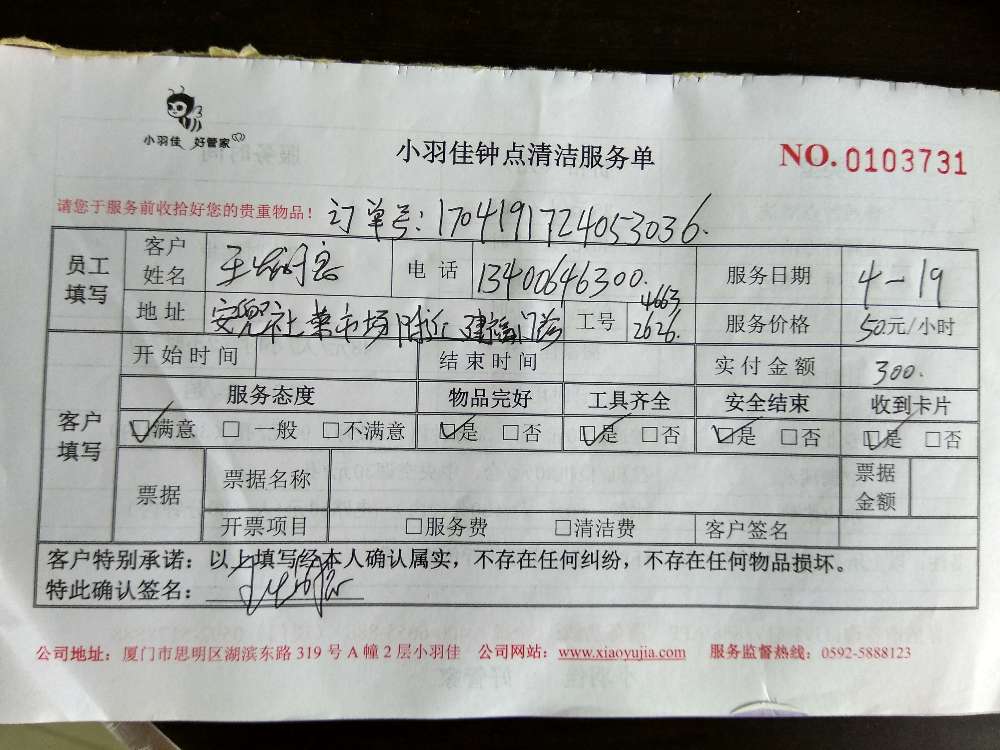 小羽佳 好管家
小羽佳钟点清洁服务单
NO.0103731
请您于服务前收拾好您的贵重物品！
订单号：1704191724053036.
员工填写 客户姓名 电话 13400646300. 服务日期 4-19
地址 安兜社菜市场附近建福门诊 工号 4663 2626. 服务价格 50元/小时
开始时间 结束时间 实付金额 300.
客户填写 服务态度 物品完好 工具齐全 安全结束 收到卡片
☑满意 □一般 □不满意 ☑是 □否 ☑是 □否 ☑是 □否 ☑是 □否
票据 票据名称 票据金额
开票项目 □服务费 □清洁费 客户签名
客户特别承诺：以上填写经本人确认属实，不存在任何纠纷，不存在任何物品损坏。
特此确认签名：
公司地址：厦门市思明区湖滨东路 319 号 A 幢 2 层小羽佳 公司网站：www.xiaoyujia.com 服务监督热线：0592-5888123